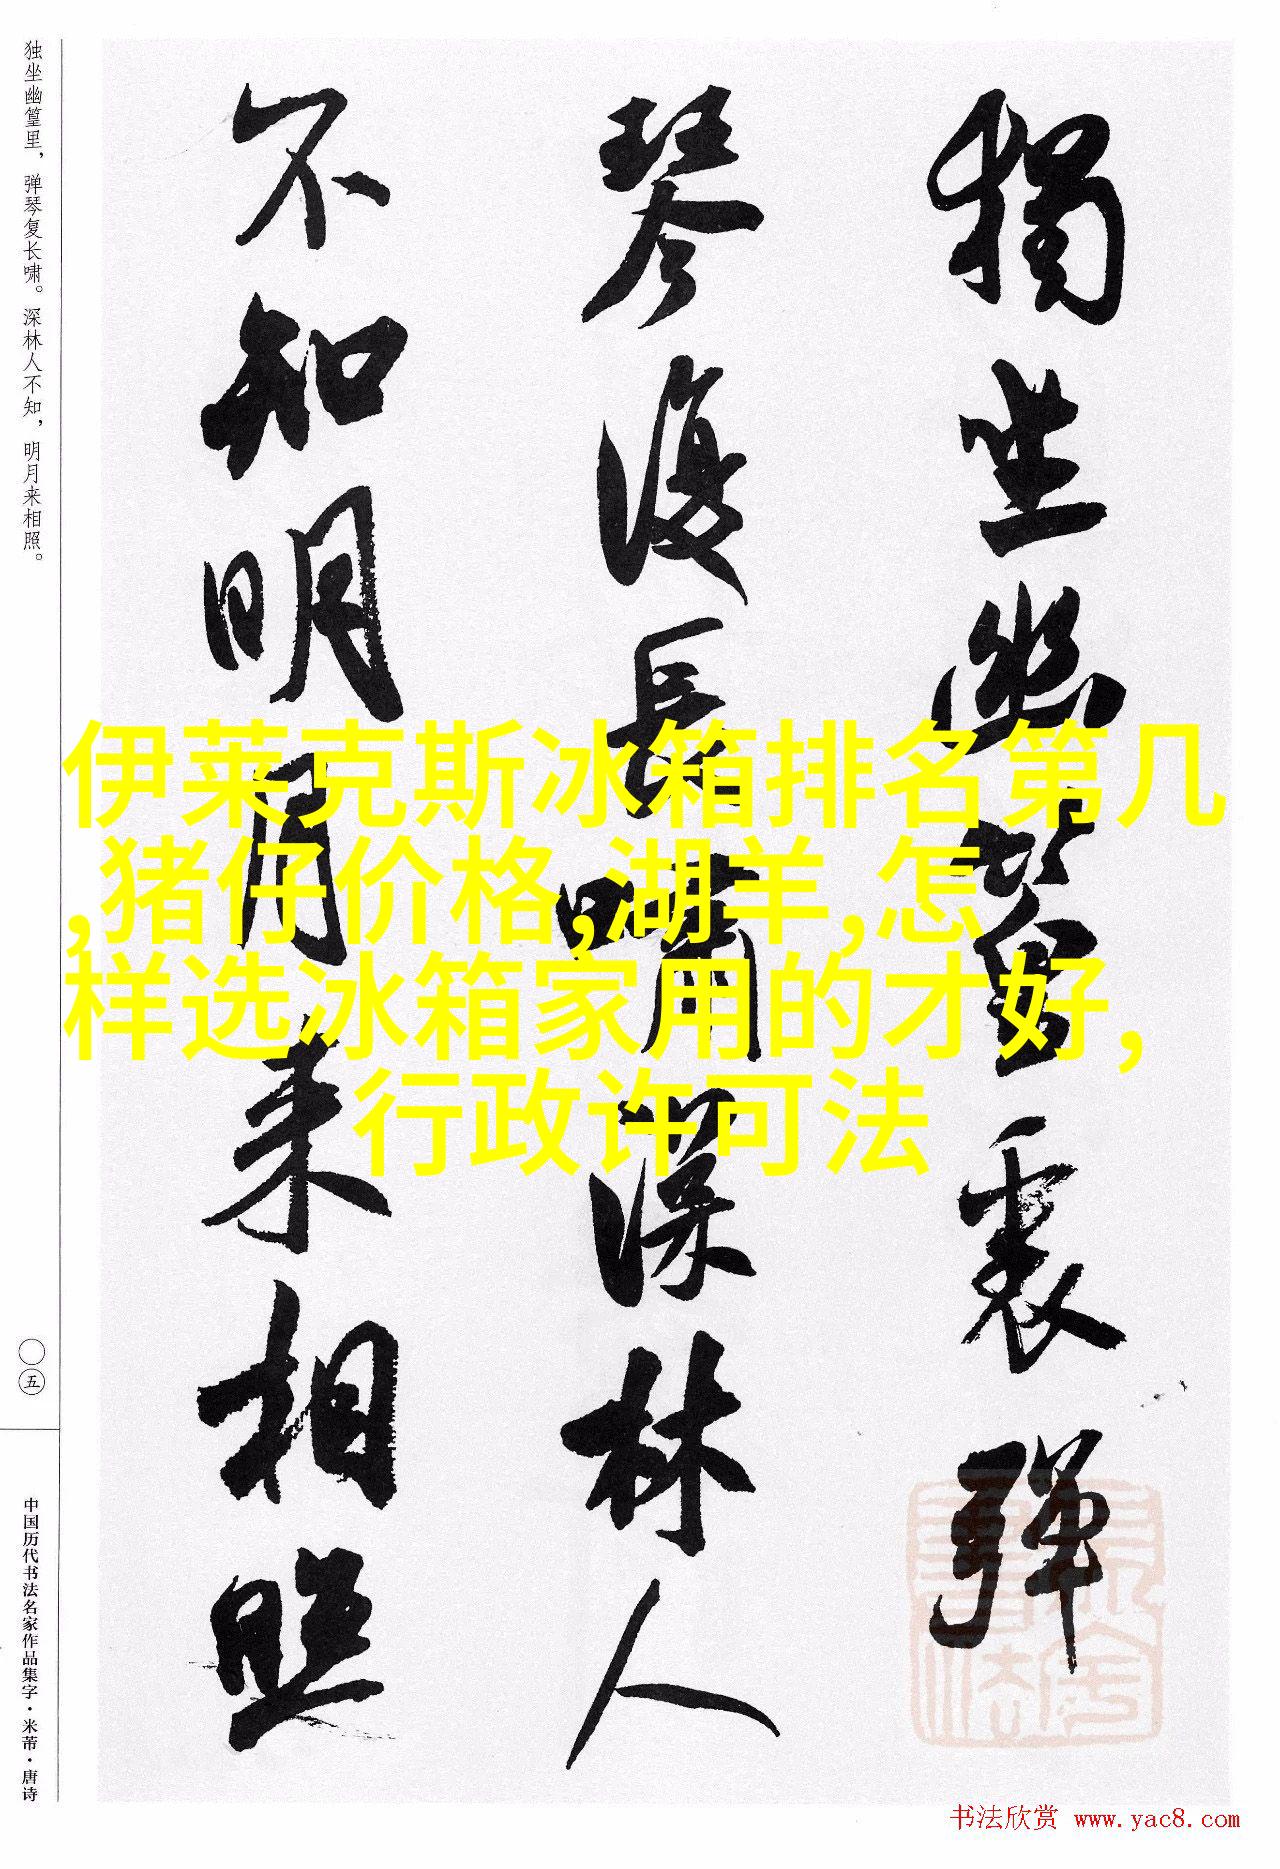 独坐幽篁里，弹琴复长啸。深林人不知，明月来相照。
〇五
中国历代书法名家作品集字·米芾·唐诗
獨坐幽篁裏彈
琴復長嘯深林人
不知明月來相照
伊莱克斯冰箱排名第几
,猪仔价格,湖羊,怎
样选冰箱家用的才好,
行政许可法
书法欣赏 www.yac8.com